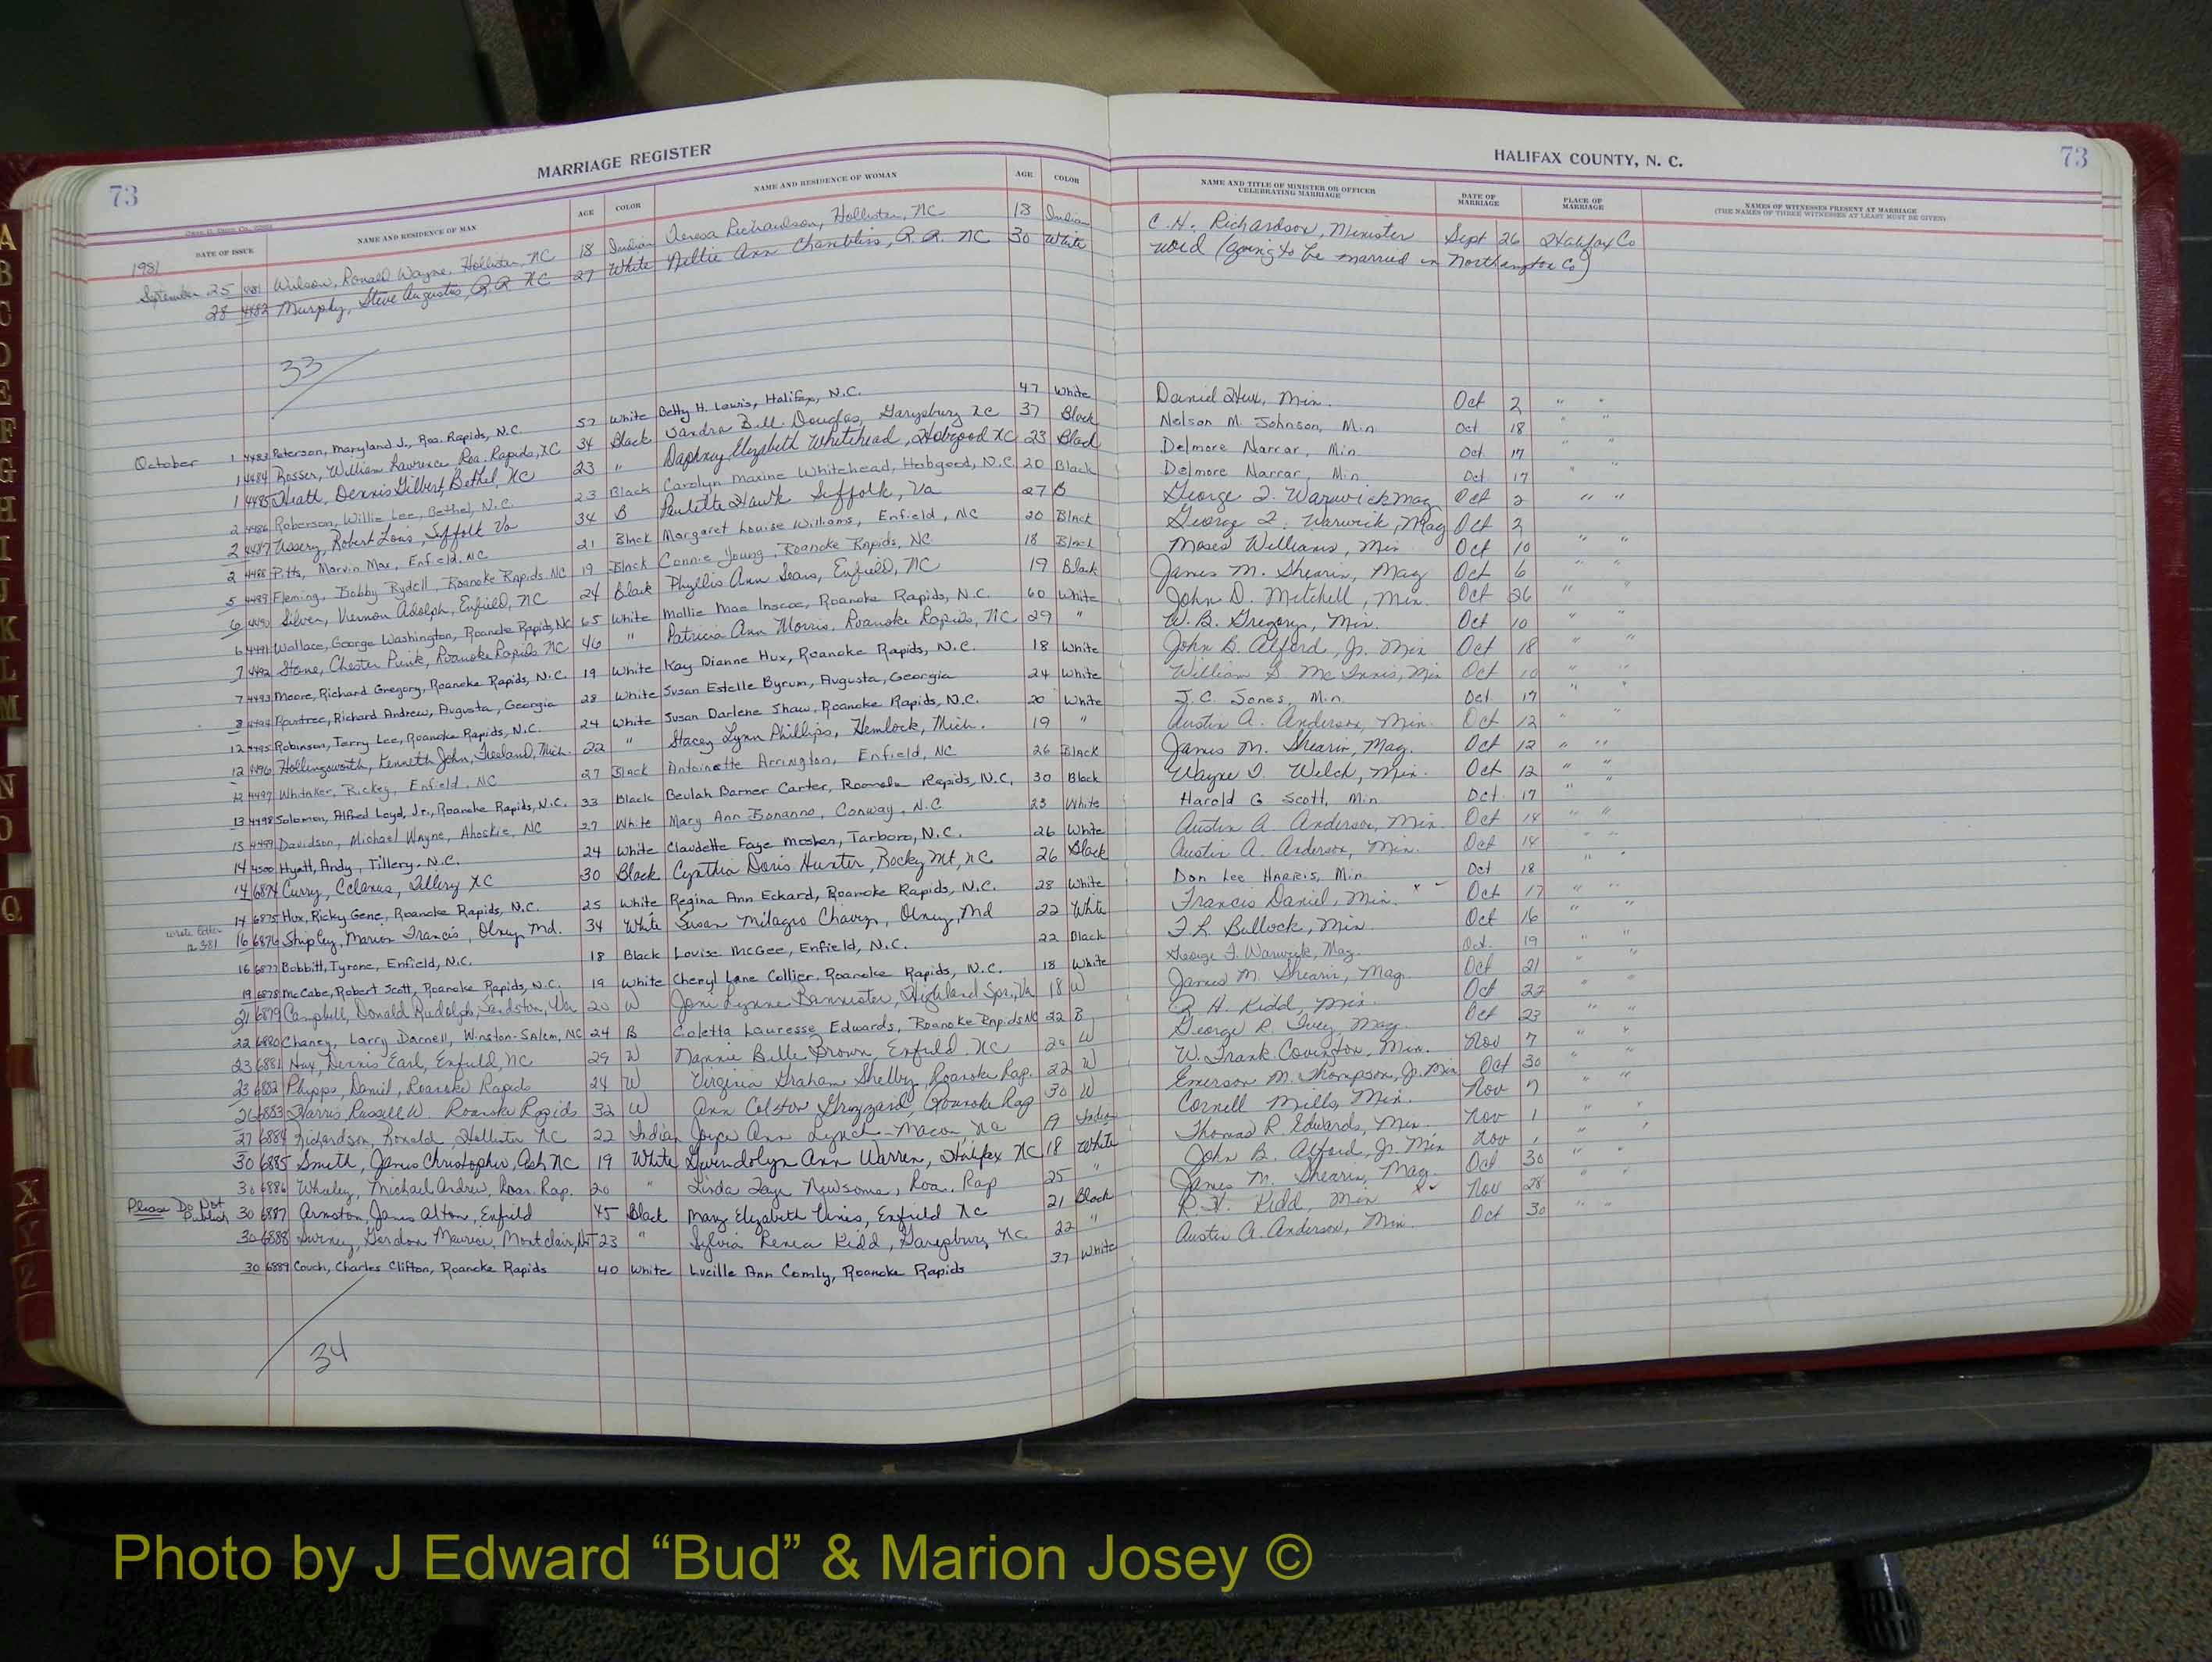 73 MARRIAGE REGISTER
HALIFAX COUNTY, N. C. 73
DATE OF ISSUE NAME AND RESIDENCE OF MAN AGE COLOR NAME AND RESIDENCE OF WOMAN AGE COLOR NAME AND TITLE OF MINISTER OR OFFICER CELEBRATING MARRIAGE DATE OF MARRIAGE PLACE OF MARRIAGE NAMES OF WITNESSES PRESENT AT MARRIAGE (THE NAMES OF THREE WITNESSES AT LEAST MUST BE GIVEN)
1981
September 25 4481 Wilson, Ronald Wayne, Hollister, NC 18 Indian Teresa Richardson, Hollister, NC 18 Indian C. H. Richardson, Minister Sept 26 Halifax Co
28 4482 Murphy, Steve Augustus, R.R. NC 27 White Nettie Ann Chambliss, R.R. NC 30 White void (going to be married in Northampton Co)
33
October 1 4483 Peterson, Maryland J., Roa. Rapids, N.C. 57 White Betty H. Lewis, Halifax, N.C. 47 White Daniel Hux, Min. Oct 2 " "
1 4484 Rosser, William Lawrence Roa. Rapids, NC 34 Black Sandra Bell Douglas, Garysburg NC 37 Black Nelson M. Johnson, Min Oct 18 " "
1 4485 Heath, Dennis Gilbert, Bethel, NC 23 " Daphney Elizabeth Whitehead, Hobgood NC 23 Black Delmore Narcar, Min Oct 17 " "
2 4486 Roberson, Willie Lee, Bethel, N.C. 23 Black Carolyn Maxine Whitehead, Hobgood, N.C. 20 Black Delmore Narcar, Min Oct 17 " "
2 4487 Ussery, Robert Louis, Suffolk Va 34 B Paulette Hawk Suffolk, Va 27 B George F. Warwick Mag Oct 2 " "
2 4488 Pitts, Marvin Mae, Enfield, NC 21 Black Margaret Louise Williams, Enfield, NC 20 Black George F. Warwick, Mag Oct 2
5 4489 Fleming, Bobby Rydell, Roanoke Rapids, NC 19 Black Connie Young, Roanoke Rapids, NC 18 Black Moses Williams, Min Oct 10 " "
6 4490 Silver, Vernon Adolph, Enfield, NC 24 Black Phyllis Ann Sears, Enfield, NC 19 Black James M. Shearin, Mag Oct 6 " "
6 4491 Wallace, George Washington, Roanoke Rapids, NC 65 White Mollie Mae Inscoe, Roanoke Rapids, N.C. 60 White John D. Mitchell, Min. Oct 26 " "
7 4492 Stone, Chester Purik, Roanoke Rapids NC 46 " Patricia Ann Morris, Roanoke Rapids, NC 29 " W. B. Gregory, Min. Oct 10 " "
7 4493 Moore, Richard Gregory, Roanoke Rapids, N.C. 19 White Kay Dianne Hux, Roanoke Rapids, N.C. 18 White John B. Alford, Jr. Min Oct 18 " "
8 4494 Rountree, Richard Andrew, Augusta, Georgia 28 White Susan Estelle Byrum, Augusta, Georgia 24 White William S. McInnis, Min Oct 10 " "
12 4495 Robinson, Terry Lee, Roanoke Rapids, N.C. 24 White Susan Darlene Shaw, Roanoke Rapids, N.C. 20 White J. C. Jones, Min. Oct. 17 " "
12 4496 Hollingsworth, Kenneth John, Freeland, Mich. 22 " Stacey Lynn Phillips, Hemlock, Mich. 19 " Austin A. Anderson, Min. Oct 12 " "
12 4497 Whitaker, Rickey, Enfield, NC 27 Black Antoinette Arrington, Enfield, NC 26 Black James M. Shearin, Mag. Oct 12 " "
13 4498 Solomon, Alfred Loyd, Jr., Roanoke Rapids, N.C. 33 Black Beulah Barner Carter, Roanoke Rapids, N.C. 30 Black Wayne D. Welch, Min. Oct 12 " "
13 4499 Davidson, Michael Wayne, Ahoskie, NC 27 White Mary Ann Bonanno, Conway, N.C. 23 White Harold G Scott, Min Oct 17 "
14 4500 Hyatt, Andy, Tillery, N.C. 24 White Claudette Faye Mosher, Tarboro, N.C. 26 White Austin A. Anderson, Min. Oct 14 " "
14 6874 Curry, Celanus, Tillery NC 30 Black Cynthia Doris Hunter, Rocky Mt, NC 26 Black Austin A. Anderson, Min. Oct 14 " "
14 6875 Hux, Ricky Gene, Roanoke Rapids, N.C. 25 White Regina Ann Eckard, Roanoke Rapids, N.C. 28 White Don Lee Harris, Min Oct 18 " "
wrote letter 16 6876 Shipley, Marion Francis, Olney Md. 34 White Susan Milagro Chavez, Olney, Md 22 White Francis Daniel, Min. Oct 17 " "
16 6877 Bobbitt, Tyrone, Enfield, N.C. 18 Black Louise McGee, Enfield, N.C. 22 Black F. L. Bullock, Min Oct 16 " "
19 6878 McCabe, Robert Scott, Roanoke Rapids, N.C. 19 White Cheryl Lane Collier, Roanoke Rapids, N.C. 18 White George F. Warwick, Mag. Oct. 19 " "
21 6879 Campbell, Donald Rudolph, Sandston, Va 20 W Joni Lynne Bannister, Highland Spr, Va 18 W James M. Shearin, Mag. Oct 21 " "
22 6880 Chaney, Larry Darnell, Winston-Salem, NC 24 B Coletta Lauresse Edwards, Roanoke Rapids NC 22 B R. H. Kidd, Min. Oct 22 "
23 6881 Hux, Dennis Earl, Enfield, NC 29 W Nannie Belle Brown, Enfield, NC W George R. Ivey, Mag. Oct 23 " "
23 6882 Phipps, Daniel, Roanoke Rapids 24 W Virginia Graham Shelby, Roanoke Rap. 22 W W. Frank Covington, Min. Nov 7 " "
26 6883 Harris Russell W. Roanoke Rapids 32 W Ann Colston Grizzard, Roanoke Rap 30 W Emerson M. Thompson, Jr. Min Oct 30 " "
27 6884 Richardson, Ronald, Hollister NC 22 Indian Joyce Ann Lynch - Macon, NC 19 Indian Cornell Mills, Min. Nov 7 " "
30 6885 Smith, James Christopher, Ash NC 19 White Gwendolyn Ann Warren, Halifax NC 18 White Thomas R. Edwards, Min. Nov 1 " "
30 6886 Whaley, Michael Andrew, Roan. Rap. 20 " Linda Faye Newsome, Roa. Rap 25 " John B. Alford, Jr. Min Nov 1 " "
Please Do Not Publish 30 6887 Armston, James Alton, Enfield 45 Black Mary Elizabeth Vines, Enfield NC 21 Black James M. Shearin, Mag. Oct 30 " "
30 6888 Gordon Maurice, Montclair, NJ 23 " Sylvia Renea Kidd, Garysburg NC 22 " R. H. Kidd, Min Nov 28 " "
30 6889 Couch, Charles Clifton, Roanoke Rapids 40 White Lucille Ann Comly, Roanoke Rapids 37 White Austin A. Anderson, Min Oct 30 " "
34
Photo by J Edward “Bud” & Marion Josey ©